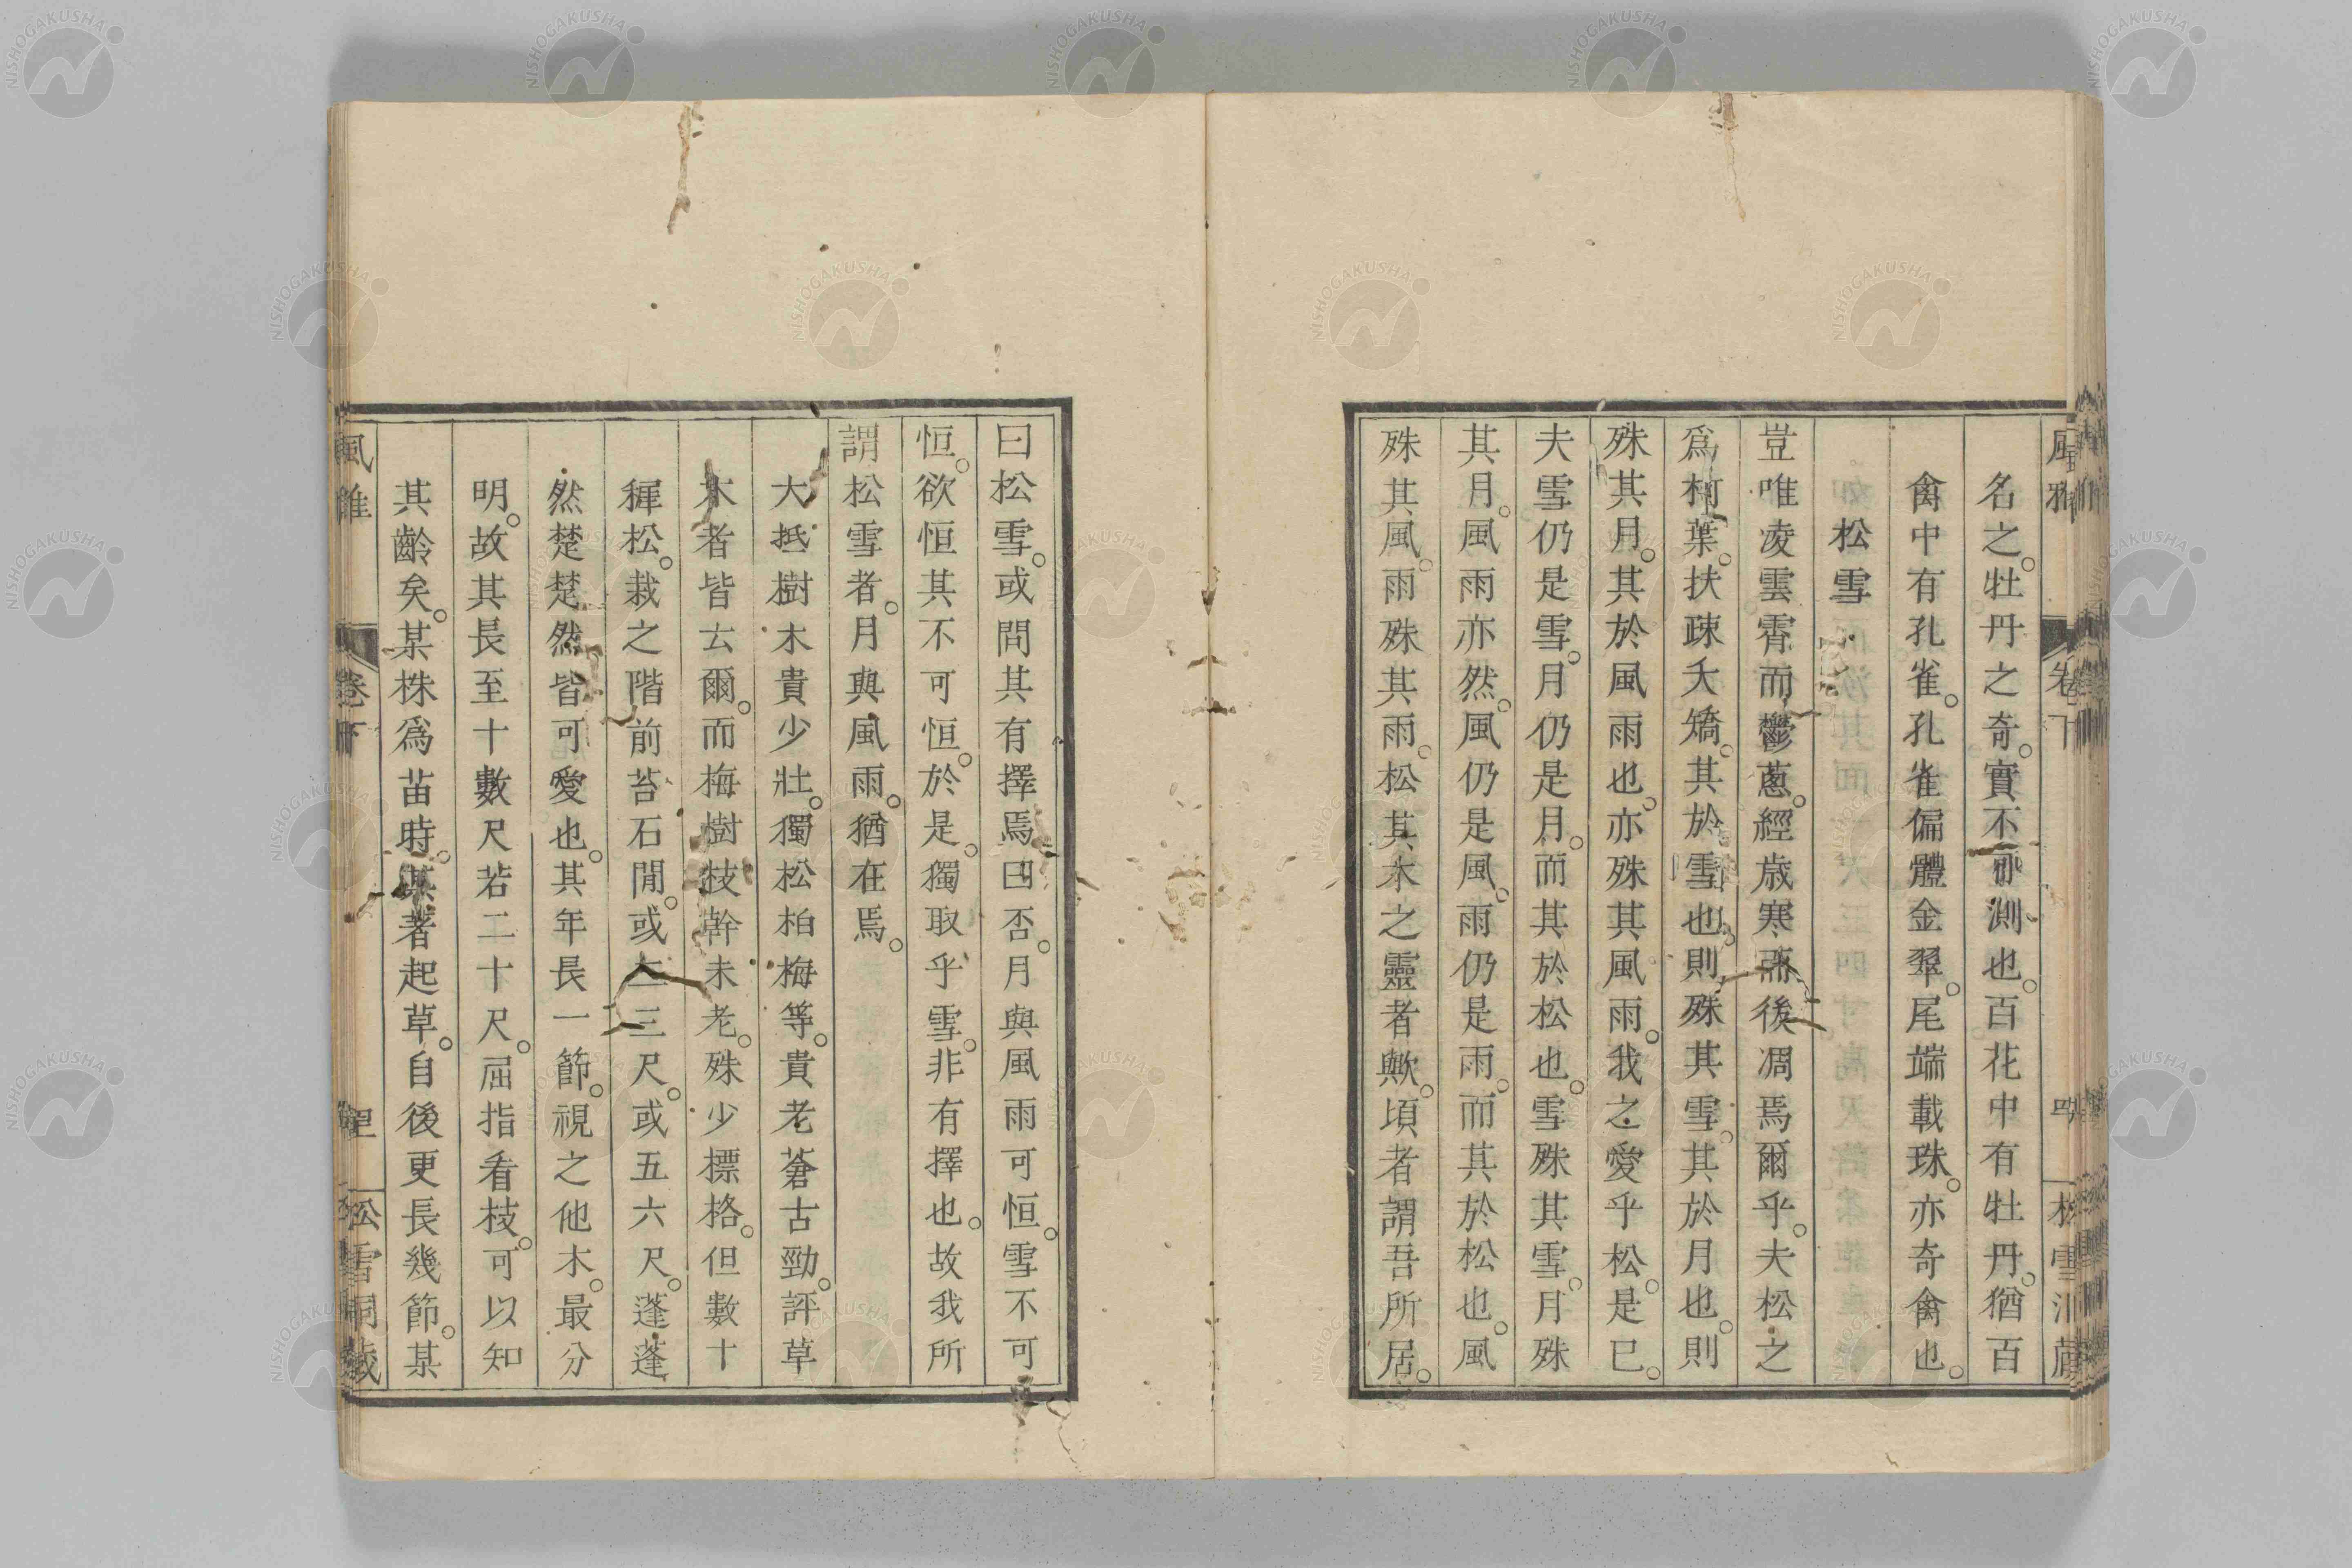 名之。牡丹之奇。實不可測也。百花中有牡丹。猶百
禽中有孔雀。孔雀偏體金翠。尾端載珠。亦奇禽也。
松雪
豈唯凌雲霄而鬱蔥。經歲寒而後凋焉爾乎。夫松之
爲柯葉。扶疎夭矯。其於雪也。則殊其雪。其於月也。則
殊其月。其於風雨也。亦殊其風雨。我之愛乎松。是已。
夫雪仍是雪。月仍是月。而其於松也。雪殊其雪。月殊
其月。風雨亦然。風仍是風。雨仍是雨。而其於松也。風
殊其風。雨殊其雨。松其木之靈者歟。頃者謂吾所居。
曰松雪。或問其有擇焉。曰否。月與風雨可恒。雪不可
恒。欲恒其不可恒。於是。獨取乎雪。非有擇也。故我所
謂松雪者。月與風雨。猶在焉。
大抵樹木貴少壯。獨松柏梅等。貴老蒼古勁。評草
木者皆云爾。而梅樹枝幹未老。殊少標格。但數十
穉松。栽之階前苔石間。或二三尺。或五六尺。蓬蓬
然楚楚然皆可愛也。其年長一節。視之他木。最分
明。故其長至十數尺若二十尺。屈指看枝。可以知
其齡矣。某株爲苗時。某著起草。自後更長幾節。某
風雅
卷下
松雪洞藏
NISHOGAKUSHA